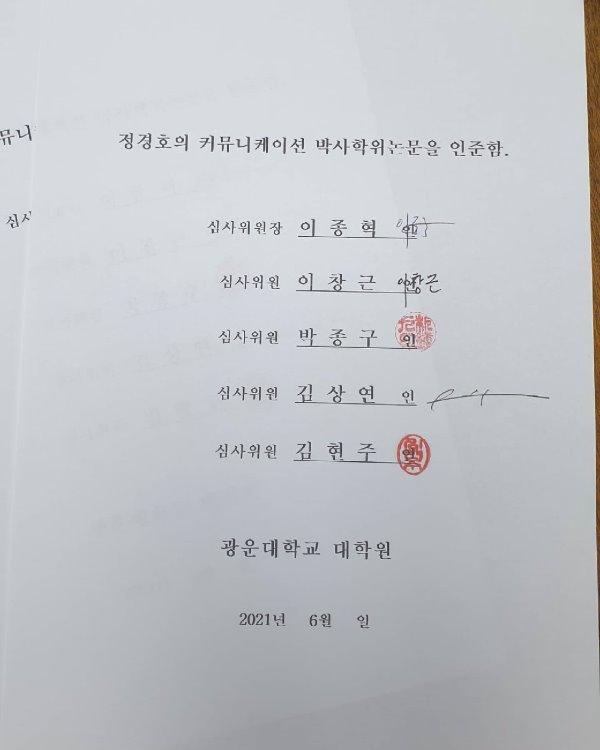 뮤니
정경호의 커뮤니케이션 박사학위논문을 인준함.
심사
심사위원장 이 종 혁 인
심사위원 이 창 근 인 이창근
심사위원 박 종 구 인
심사위원 김 상 연 인
심사위원 김 현 주 인
광운대학교 대학원
2021년 6월 일